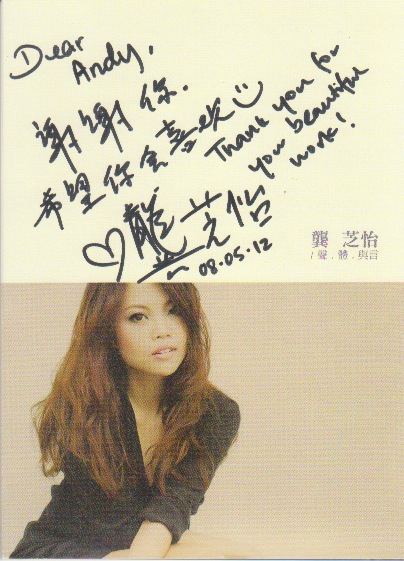 Dear
Andy,
谢谢你.
希望你会喜欢
Thank you for
you beautiful
work!
龔芝怡
08.05.12
龔 芝怡
/ 聲 . 體 . 與言